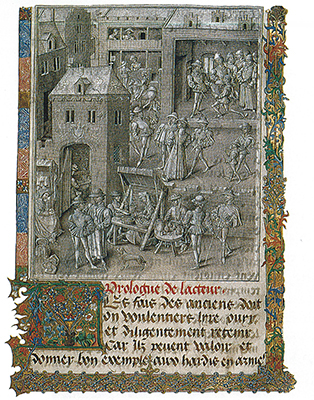 Prologue de lacteur
Les fais des anciens doit
on voulentiers lyre ouyr
et diligentement retenir
Car ilz pevent valoir et
donner bon exemple aux hardis en arme